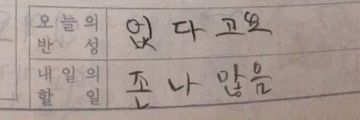 오늘의 반성 없다고요
내일의 할 일 존나 많음